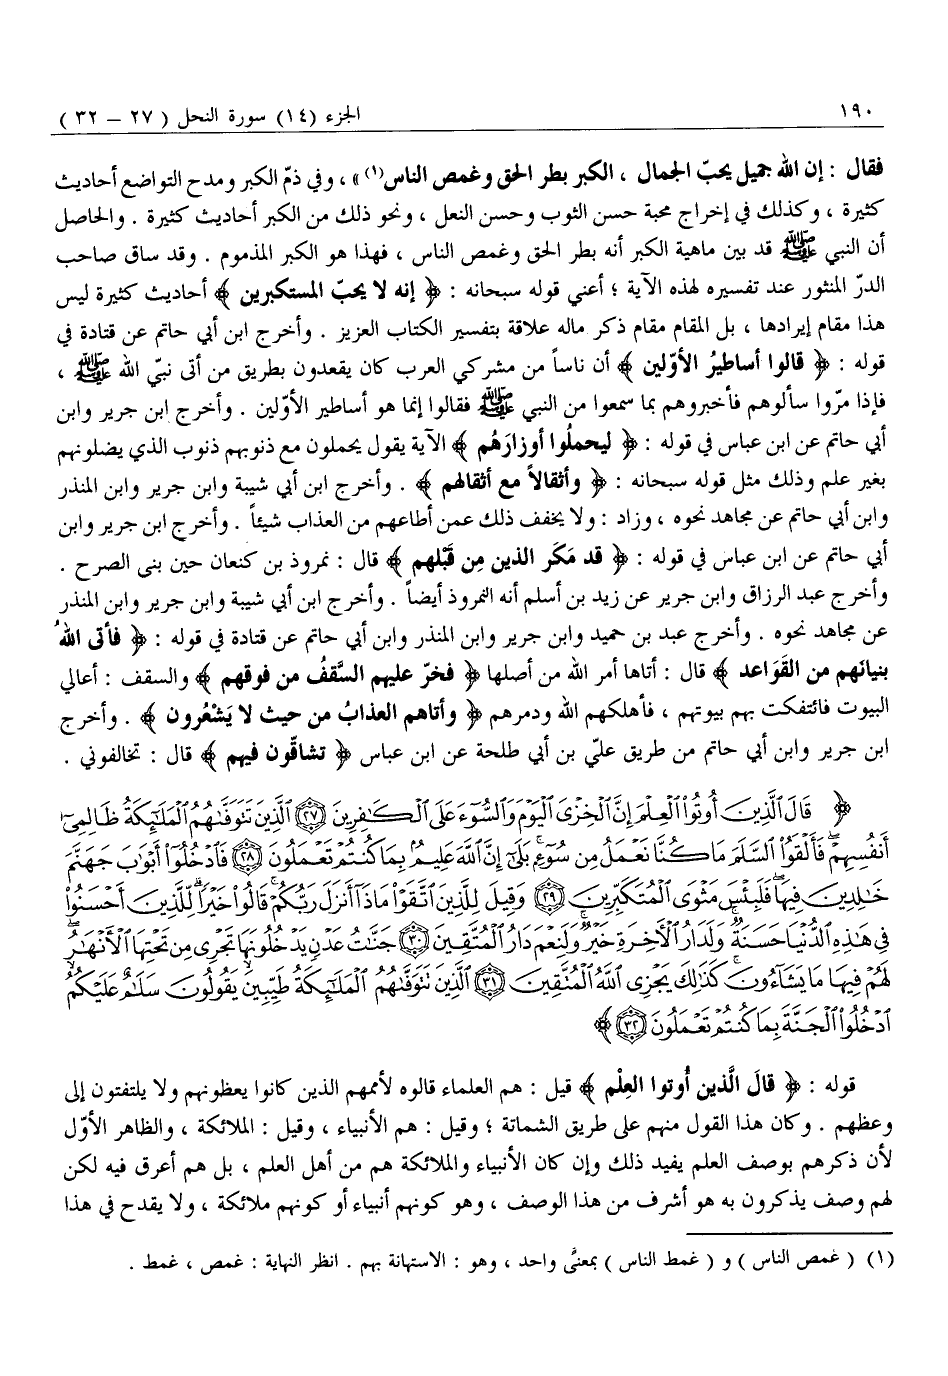 ١٩٠
الجزء (١٤) سورة النحل ( ٢٧ – ٣٢ )
فقال : إن الله جميل يحبّ الجمال ، الكبر بطر الحق وغمص الناس(١) » ، وفي ذمّ الكبر ومدح التواضع أحاديث
كثيرة ، وكذلك في إخراج محبة حسن الثوب وحسن النعل ، ونحو ذلك من الكبر أحاديث كثيرة . والحاصل
أن النبي ﷺ قد بين ماهية الكبر أنه بطر الحق وغمص الناس ، فهذا هو الكبر المذموم . وقد ساق صاحب
الدرّ المنثور عند تفسيره لهذه الآية ؛ أعني قوله سبحانه : ﴿ إنه لا يحبّ المستكبرين ﴾ أحاديث كثيرة ليس
هذا مقام إيرادها ، بل المقام مقام ذكر ماله علاقة بتفسير الكتاب العزيز . وأخرج ابن أبي حاتم عن قتادة في
قوله : ﴿ قالوا أساطيرُ الأوّلين ﴾ أن ناساً من مشركي العرب كان يقعدون بطريق من أتى نبّي الله ﷺ ،
فإذا مرّوا سألوهم فأخبروهم بما سمعوا من النبي ﷺ فقالوا إنما هو أساطير الأوّلين . وأخرج ابن جرير وابن
أبي حاتم عن ابن عباس في قوله : ﴿ ليحملُوا أوزارَهُم ﴾ الآية يقول يحملون مع ذنوبهم ذنوب الذي يضلونهم
بغير علم وذلك مثل قوله سبحانه : ﴿ وأثقالاً مع أثقالهم ﴾ . وأخرج ابن أبي شيبة وابن جرير وابن المنذر
وابن أبي حاتم عن مجاهد نحوه ، وزاد : ولا يخفف ذلك عمن أطاعهم من العذاب شيئاً . وأخرج ابن جرير وابن
أبي حاتم عن ابن عباس في قوله : ﴿ قد مَكَر الذين مِن قَبْلهم ﴾ قال : نمروذ بن كنعان حين بنى الصرح .
وأخرج عبد الرزاق وابن جرير عن زيد بن أسلم أنه النمروذ أيضاً . وأخرج ابن أبي شيبة وابن جرير وابن المنذر
عن مجاهد نحوه . وأخرج عبد بن حميد وابن جرير وابن المنذر وابن أبي حاتم عن قتادة في قوله : ﴿ فأتى اللهُ
بنيانَهم من القَوَاعد ﴾ قال : أتاها أمر الله من أصلها ﴿ فخرّ عليهم السَّقفُ من فوقهم ﴾ والسقف : أعالي
البيوت فائتفكت بهم بيوتهم ، فأهلكهم الله ودمرهم ﴿ وأتاهم العذابُ من حيث لا يَشْعُرون ﴾ . وأخرج
ابن جرير وابن أبي حاتم من طريق عليّ بن أبي طلحة عن ابن عباس ﴿ تشاقّون فيهم ﴾ قال : تخالفوني .
﴿ قَالَ ٱلَّذِينَ أُوتُوا۟ ٱلْعِلْمَ إِنَّ ٱلْخِزْىَ ٱلْيَوْمَ وَٱلسُّوٓءَ عَلَى ٱلْكَٰفِرِينَ ۝٢٧ ٱلَّذِينَ تَتَوَفَّىٰهُمُ ٱلْمَلَٰٓئِكَةُ ظَالِمِىٓ
أَنفُسِهِمْ ۖ فَأَلْقَوُا۟ ٱلسَّلَمَ مَا كُنَّا نَعْمَلُ مِن سُوٓءٍۭ ۚ بَلَىٰٓ إِنَّ ٱللَّهَ عَلِيمٌۢ بِمَا كُنتُمْ تَعْمَلُونَ ۝٢٨ فَٱدْخُلُوٓا۟ أَبْوَٰبَ جَهَنَّمَ
خَٰلِدِينَ فِيهَا ۖ فَلَبِئْسَ مَثْوَى ٱلْمُتَكَبِّرِينَ ۝٢٩ وَقِيلَ لِلَّذِينَ ٱتَّقَوْا۟ مَاذَآ أَنزَلَ رَبُّكُمْ ۚ قَالُوا۟ خَيْرًا ۗ لِّلَّذِينَ أَحْسَنُوا۟
فِى هَٰذِهِ ٱلدُّنْيَا حَسَنَةٌ ۚ وَلَدَارُ ٱلْءَاخِرَةِ خَيْرٌ ۚ وَلَنِعْمَ دَارُ ٱلْمُتَّقِينَ ۝٣٠ جَنَّٰتُ عَدْنٍ يَدْخُلُونَهَا تَجْرِى مِن تَحْتِهَا ٱلْأَنْهَٰرُ ۖ
لَهُمْ فِيهَا مَا يَشَآءُونَ ۚ كَذَٰلِكَ يَجْزِى ٱللَّهُ ٱلْمُتَّقِينَ ۝٣١ ٱلَّذِينَ تَتَوَفَّىٰهُمُ ٱلْمَلَٰٓئِكَةُ طَيِّبِينَ ۙ يَقُولُونَ سَلَٰمٌ عَلَيْكُمُ
ٱدْخُلُوا۟ ٱلْجَنَّةَ بِمَا كُنتُمْ تَعْمَلُونَ ۝٣٢ ﴾
قوله : ﴿ قالَ الَّذين أُوتوا العِلْم ﴾ قيل : هم العلماء قالوه لأممهم الذين كانوا يعظونهم ولا يلتفتون إلى
وعظهم . وكان هذا القول منهم على طريق الشماتة ؛ وقيل : هم الأنبياء ، وقيل : الملائكة ، والظاهر الأوّل
لأن ذكرهم بوصف العلم يفيد ذلك وإن كان الأنبياء والملائكة هم من أهل العلم ، بل هم أعرق فيه لكن
لهم وصف يذكرون به هو أشرف من هذا الوصف ، وهو كونهم أنبياء أو كونهم ملائكة ، ولا يقدح في هذا
(١) ( غمص الناس ) و ( غمط الناس ) بمعنًى واحد ، وهو : الاستهانة بهم . انظر النهاية : غمص ، غمط .